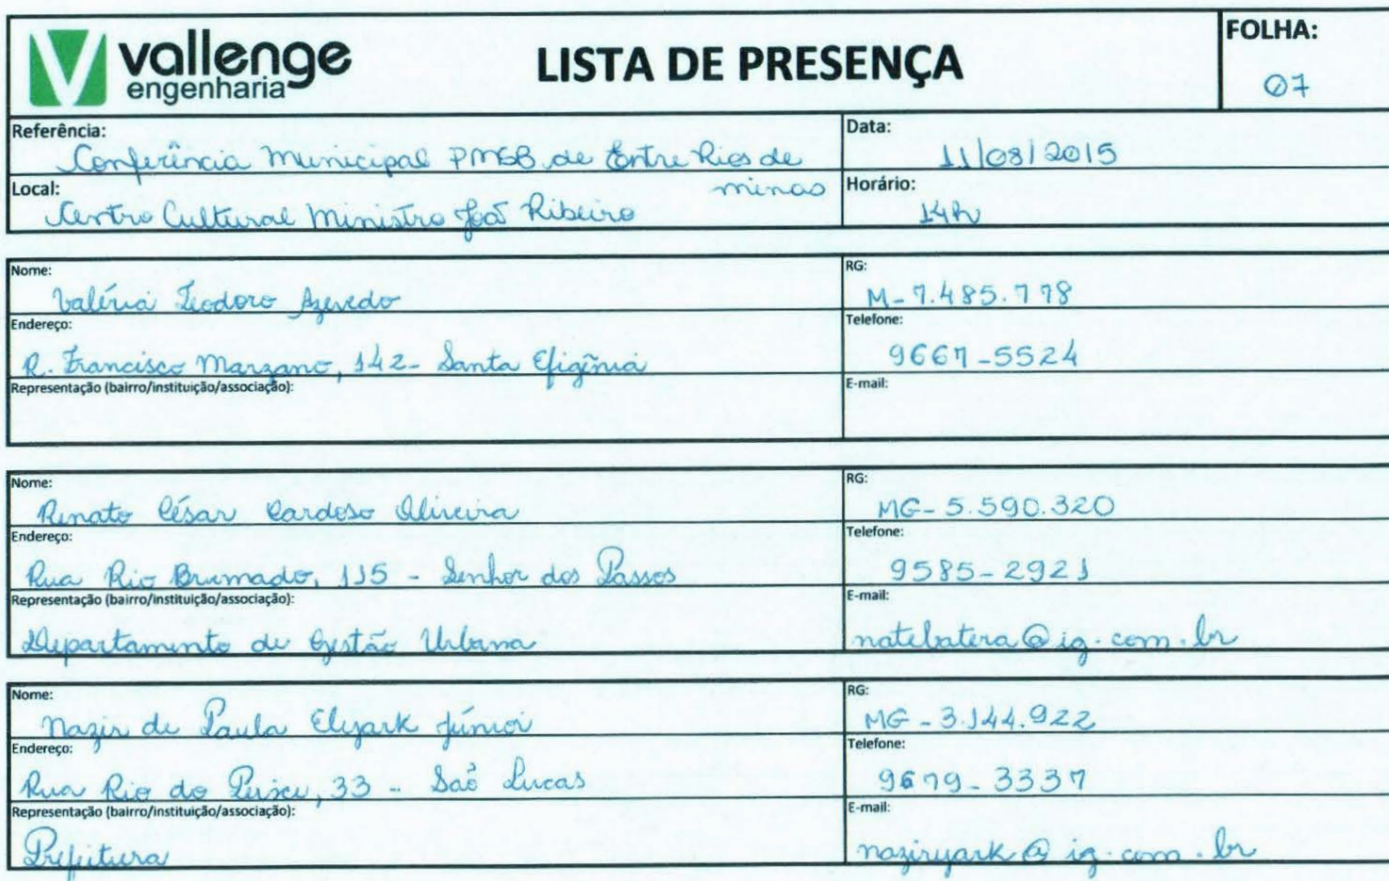 vallenge
engenharia
LISTA DE PRESENÇA
FOLHA:
07
Referência:
Conferência Municipal PMSB de Entre Rios de
minas
Data:
11/08/2015
Local:
Centro Cultural Ministro João Ribeiro
Horário:
14h
Nome:
Valéria Teodoro Azevedo
RG:
M-7.485.778
Endereço:
R. Francisco Marzano, 142- Santa Efigênia
Telefone:
9667-5524
Representação (bairro/instituição/associação):
E-mail:
Nome:
Renato César Cardoso Oliveira
RG:
MG-5.590.320
Endereço:
Rua Rio Brumado, 115 - Senhor dos Passos
Telefone:
9585-2921
Representação (bairro/instituição/associação):
Departamento de Gestão Urbana
E-mail:
natebatera@ig.com.br
Nome:
Nazir de Paula Elyark Júnior
RG:
MG-3.144.922
Endereço:
Rua Rio do Peixe, 33 - São Lucas
Telefone:
9679-3337
Representação (bairro/instituição/associação):
Prefeitura
E-mail:
naziryark@ig.com.br